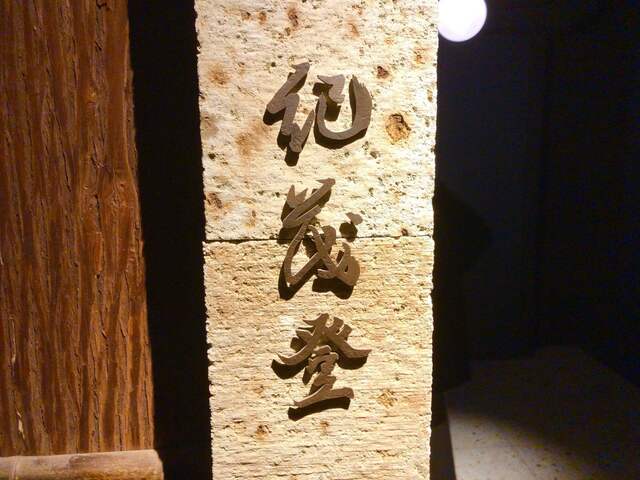 紀茂登